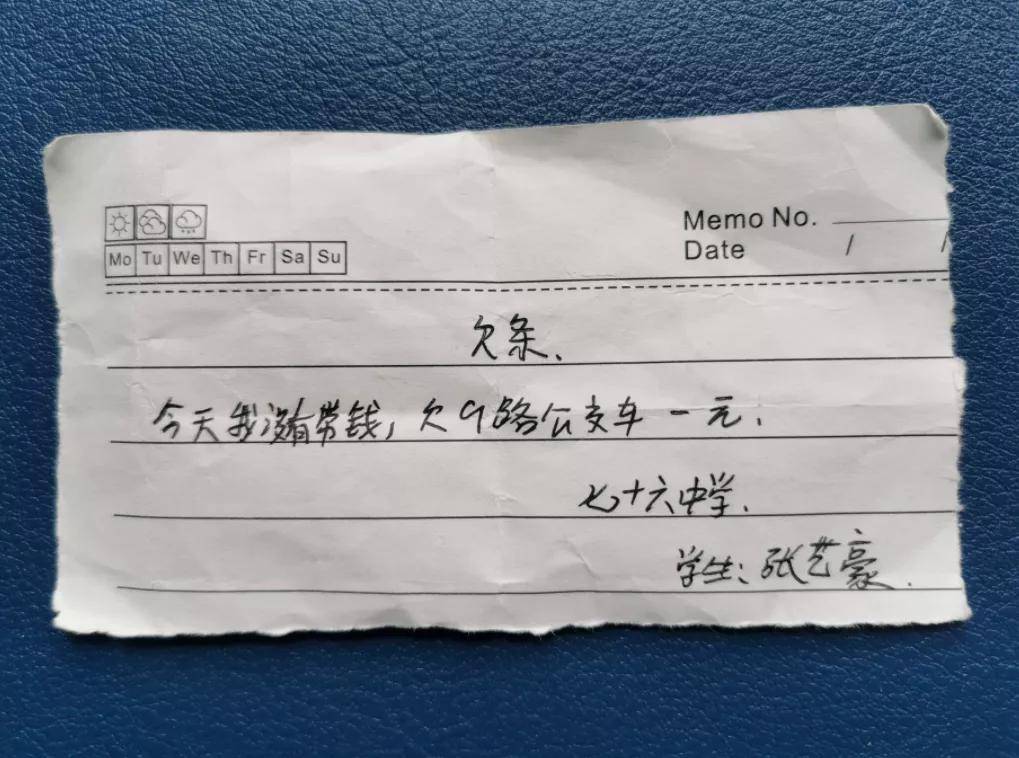 Memo No.
Mo Tu We Th Fr Sa Su
Date / /
欠条.
今天我没有带钱,欠9路公交车一元.
七十六中学.
学生:张艺豪.